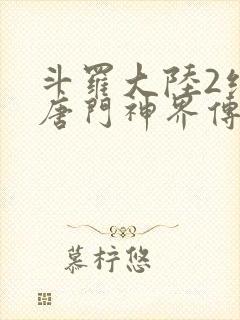 斗羅大陸2
唐門神界傳
慕梓悠